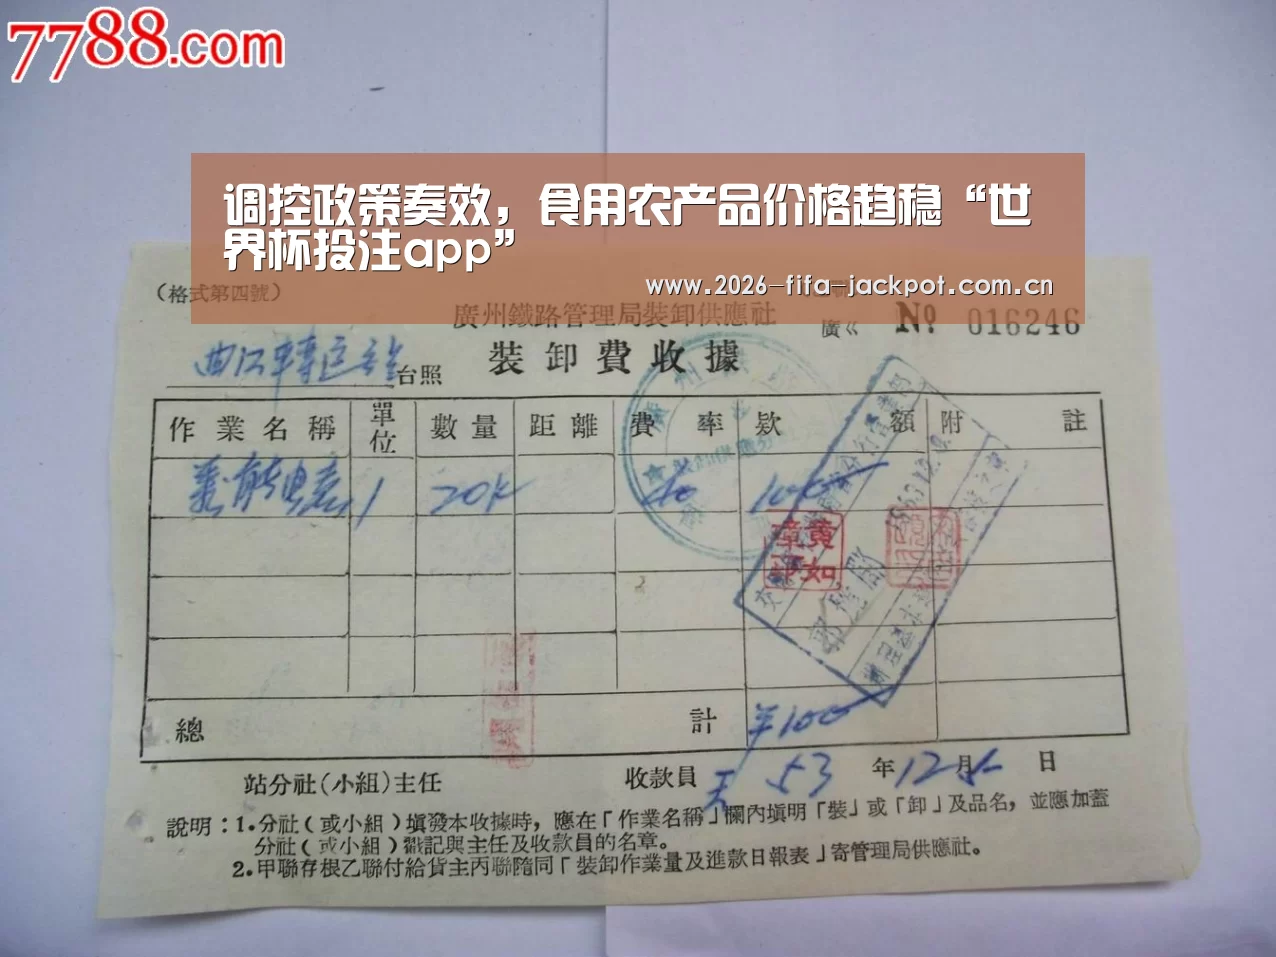 7788.com
调控政策奏效，食用农产品价格趋稳“世
界杯投注app”
www.2026-fifa-jackpot.com.cn
(格式第四號)
廣州鐵路管理局裝卸供應社
廣 № 016246
台照 裝卸費收據
作業名稱 單位 數量 距離 費率 欵額 附註
1 20 100
黃如
總計 ¥100
站分社(小組)主任 收款員 53年12月 日
說明：1.分社(或小組)填發本收據時，應在「作業名稱」欄內填明「裝」或「卸」及品名，並應加蓋
分社(或小組)戳記與主任及收款員的名章。
2.甲聯存根乙聯付給貨主丙聯隨同「裝卸作業量及進款日報表」寄管理局供應社。